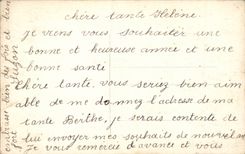 chère tante Hélène
je viens vous souhaiter une
bonne et heureuse année et une
bonne santé
Chère tante, vous seriez bien aim
able de me donnez l'adresse de ma
tante Berthe, je serais contente de
lui envoyer mes souhaits de nouvel an
Je vous remercie d'avance et vous
embrasse bien des fois et bien
fort